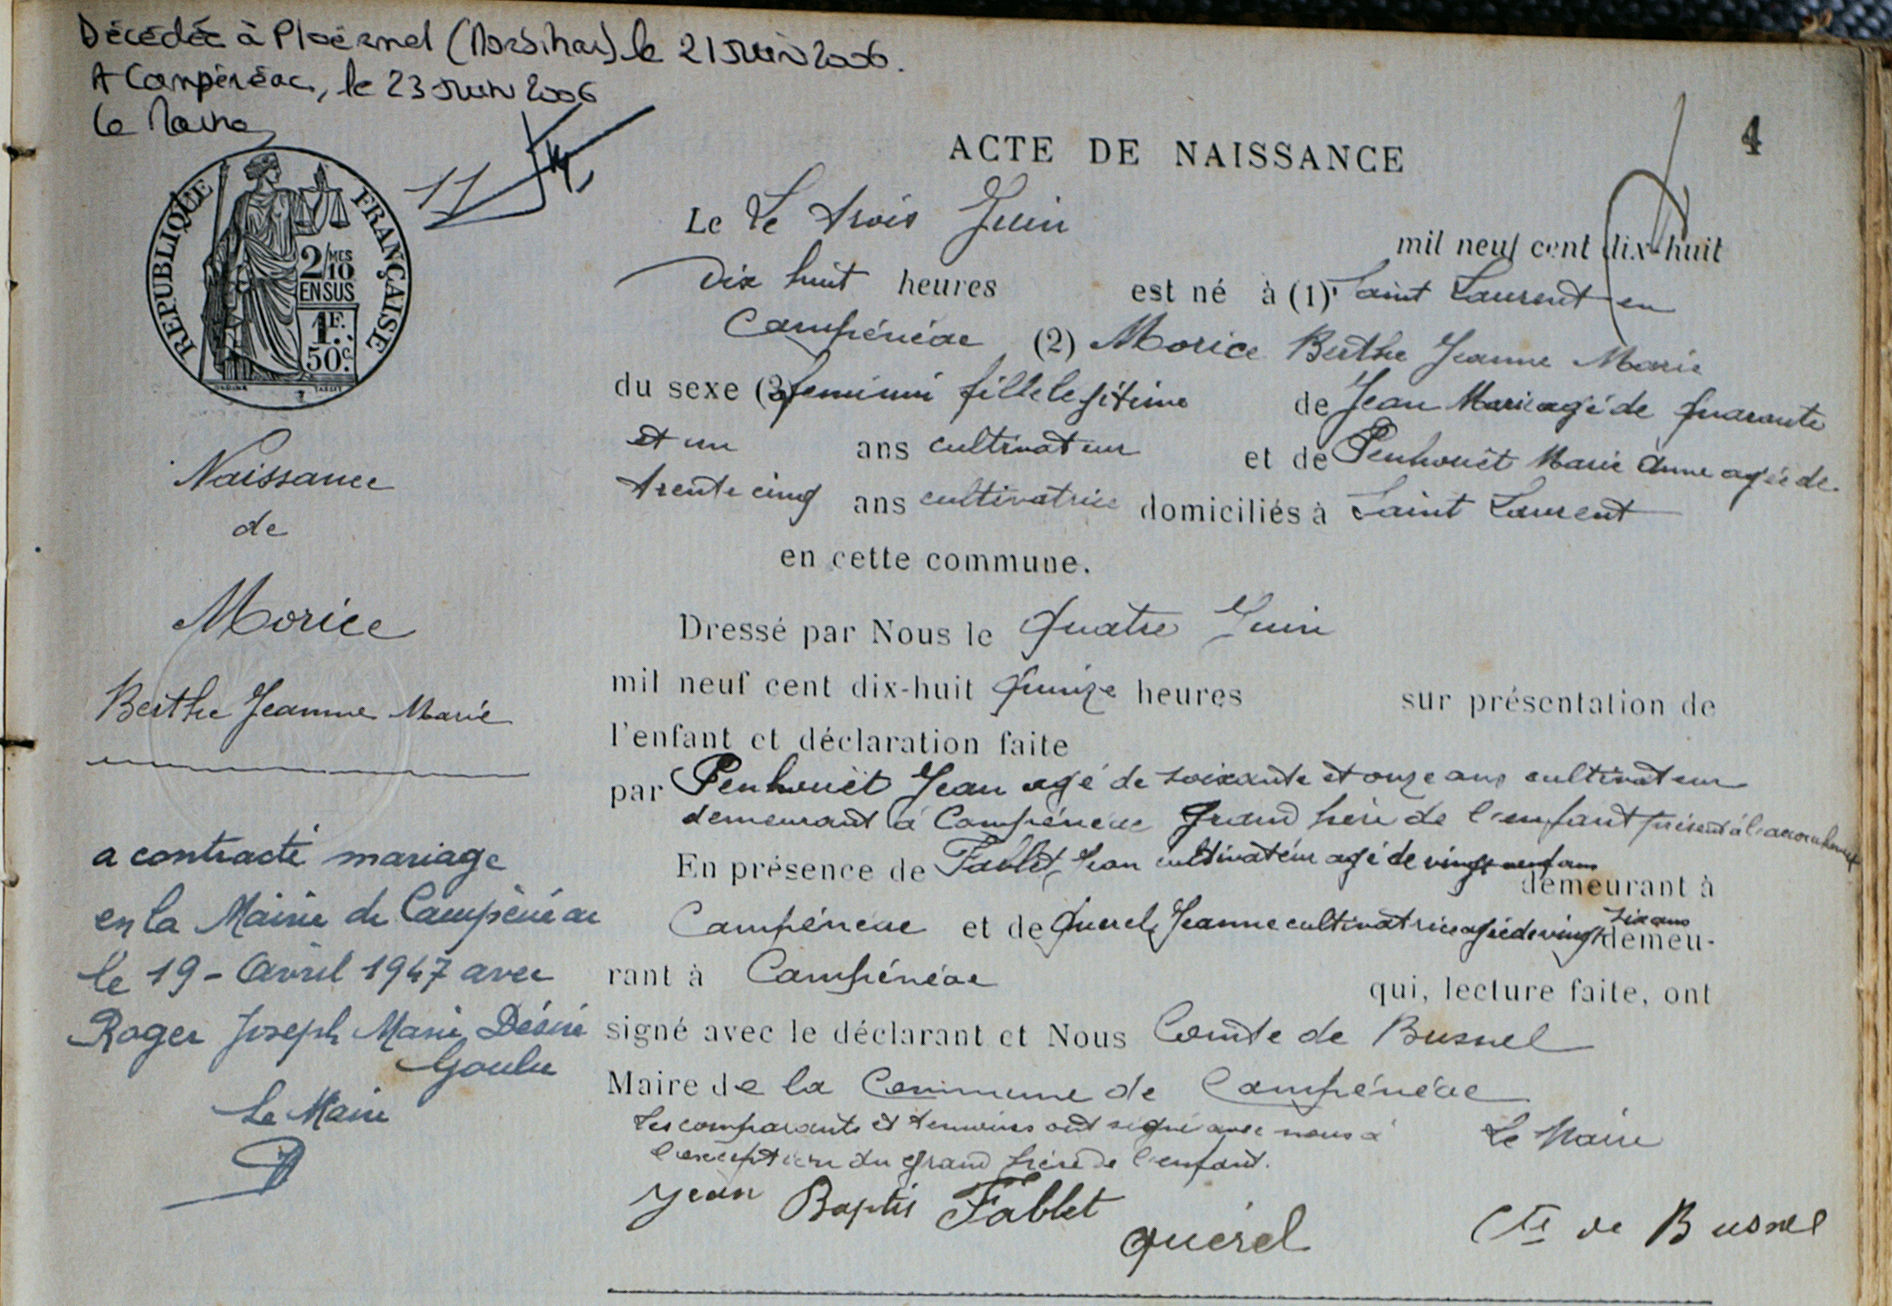 Décédée à Ploërmel (Morbihan) le 21 Juin 2006.
A Campénéac, le 23 Juin 2006
Le Maire
RÉPUBLIQUE FRANÇAISE
2/10 MES
EN SUS
1F.
50c.
11
4
ACTE DE NAISSANCE
Le Le trois Juin mil neuf cent dix-huit
Dix huit heures est né à (1) Saint Laurent en
Campénéac (2) Morice Berthe Jeanne Marie
du sexe (3) feminin fille legitime de Jean Marie agé de quarante
et un ans cultivateur et de Penhouët Marie Anne agée de
trente cinq ans cultivatrice domiciliés à Saint Laurent
en cette commune.
Dressé par Nous le quatre Juin
mil neuf cent dix-huit quinze heures sur présentation de
l'enfant et déclaration faite
par Penhouët Jean agé de soixante et onze ans cultivateur
demeurant à Campénéac grand père de l'enfant présent à l'accouchement
En présence de Fablet Jean cultivateur agé de vingt neuf ans demeurant à
Campénéac et de Querel Jeanne cultivatrice agée de vingt six ans demeu-
rant à Campénéac qui, lecture faite, ont
signé avec le déclarant et Nous Comte de Busnel
Maire de la Commune de Campénéac
Les comparants et temoins ont signé avec nous à
l'exception du grand père de l'enfant.
Le Maire
Jean Baptis Fablet
Querel
Cte de Busnel
Naissance
de
Morice
Berthe Jeanne Marie
a contracté mariage
en la Mairie de Campénéac
le 19 - Avril 1947 avec
Roger Joseph Marie Désiré
Goulu
Le Maire